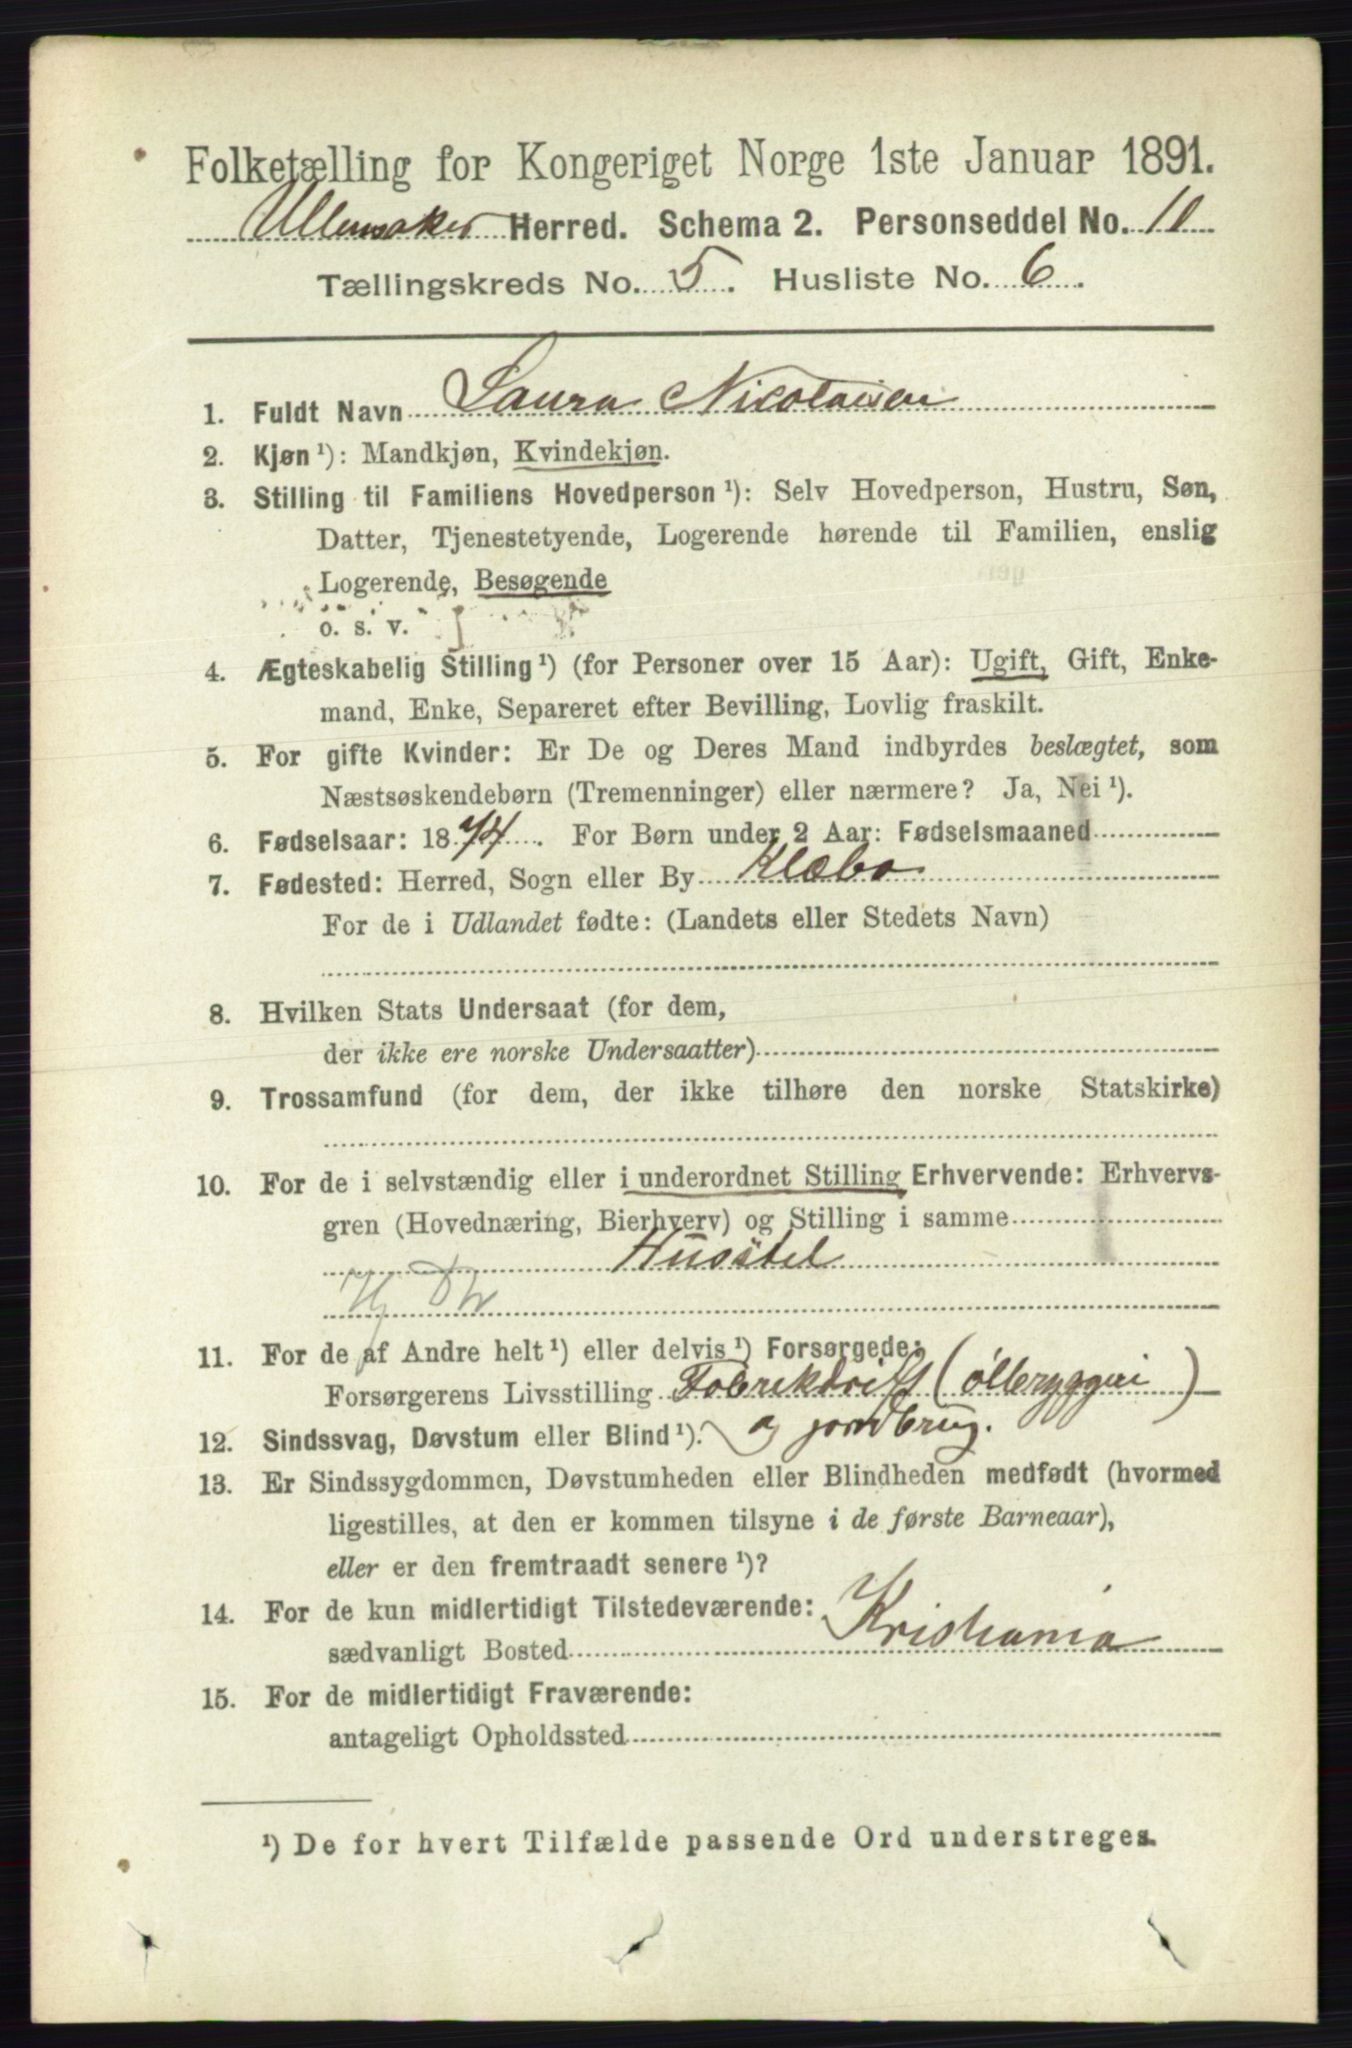 Folketælling for Kongeriget Norge 1ste Januar 1891.
Ullensaker Herred. Schema 2. Personseddel No. 10
Tællingskreds No. 5. Husliste No. 6.
1. Fuldt Navn Laura Nicolaisen
2. Kjøn ¹): Mandkjøn, Kvindekjøn.
3. Stilling til Familiens Hovedperson ¹): Selv Hovedperson, Hustru, Søn,
Datter, Tjenestetyende, Logerende hørende til Familien, enslig
Logerende, Besøgende
o. s. v.
4. Ægteskabelig Stilling ¹) (for Personer over 15 Aar): Ugift, Gift, Enke-
mand, Enke, Separeret efter Bevilling, Lovlig fraskilt.
5. For gifte Kvinder: Er De og Deres Mand indbyrdes beslægtet, som
Næstsøskendebørn (Tremenninger) eller nærmere? Ja, Nei ¹).
6. Fødselsaar: 1874. For Børn under 2 Aar: Fødselsmaaned
7. Fødested: Herred, Sogn eller By Klæbo
For de i Udlandet fødte: (Landets eller Stedets Navn)
8. Hvilken Stats Undersaat (for dem,
der ikke ere norske Undersaatter)
9. Trossamfund (for dem, der ikke tilhøre den norske Statskirke)
10. For de i selvstændig eller i underordnet Stilling Erhvervende: Erhvervs-
gren (Hovednæring, Bierhverv) og Stilling i samme
Husstel
11. For de af Andre helt ¹) eller delvis ¹) Forsørgede:
Forsørgerens Livsstilling Fabrikdrift (ölbryggeri)
12. Sindssvag, Døvstum eller Blind ¹). og jordbrug.
13. Er Sindssygdommen, Døvstumheden eller Blindheden medfødt (hvormed
ligestilles, at den er kommen tilsyne i de første Barneaar),
eller er den fremtraadt senere ¹)?
14. For de kun midlertidigt Tilstedeværende:
sædvanligt Bosted Kristiania
15. For de midlertidigt Fraværende:
antageligt Opholdssted
¹) De for hvert Tilfælde passende Ord understreges.